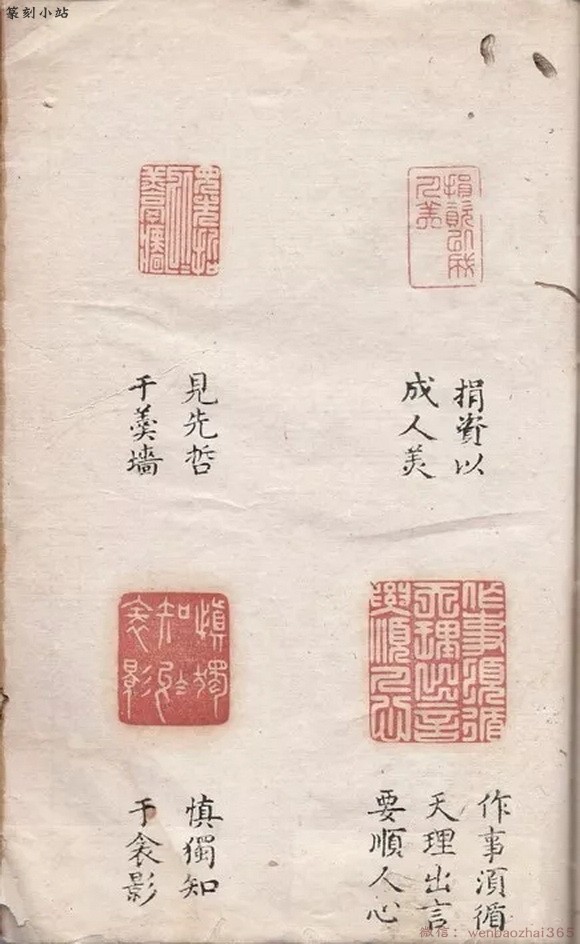 篆刻小站
捐資以
成人美
見先哲
于羹墻
作事須循
天理出言
要順人心
慎獨知
于衾影
微信：wenbaozhai365